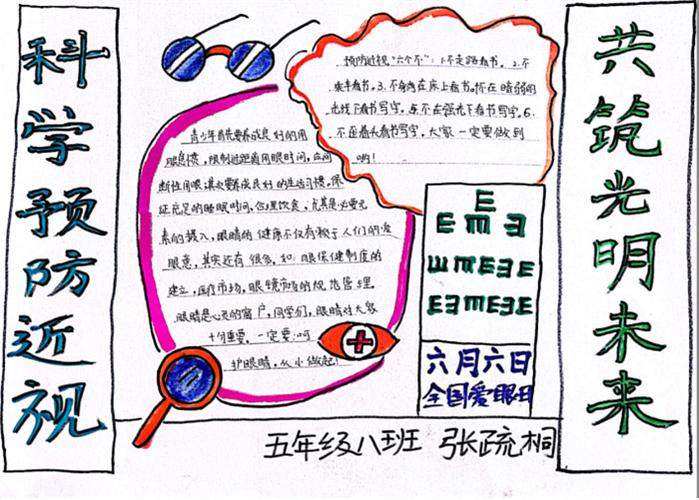 科学预防近视
预防近视“六个不”：1.不走路看书。2.不
乘车看书。3.不躺在床上看书。不在暗弱的
光线下看书写字。5.不在强光下看书写字。6.
不歪着头看书写字。大家一定要做到
哟！
青少年首先要养成良好的用
眼习惯，限制近距离用眼时间，应间
断性用眼。其次要养成良好的生活习惯，保
证充足的睡眠时间，合理饮食，尤其是必要元
素的摄入，眼睛的健康不仅有赖于人们的爱
眼意，其实还有很多，如：眼保健制度的
建立，医疗市场，眼镜市场的规范管理。
眼睛是心灵的窗户，同学们，眼睛对大家
十分重要，一定要
护眼睛，从小做起！
E
E m Ǝ
Ш m E Ǝ E
E Ǝ m E Ǝ E
六月六日
全国爱眼日
共筑光明未来
五年级八班 张疏桐